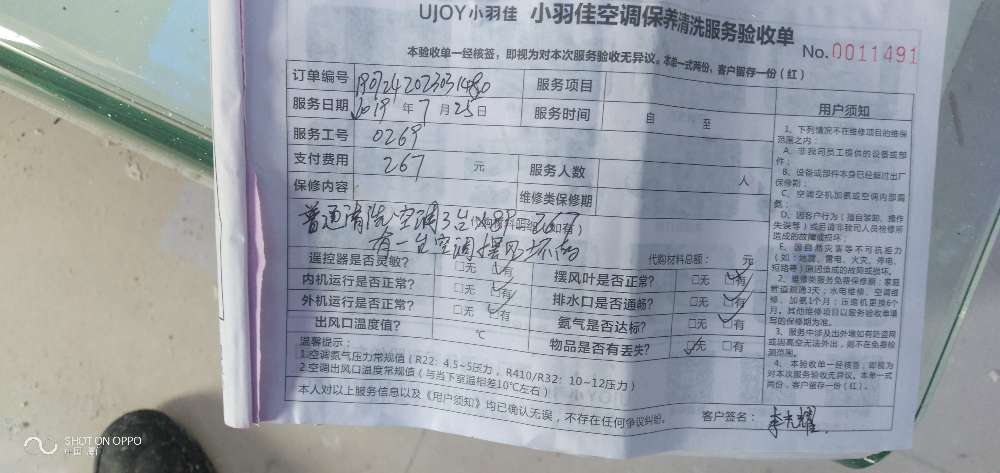 UJOY小羽佳 小羽佳空调保养清洗服务验收单
本验收单一经核签，即视为对本次服务验收无异议。本单一式两份，客户留存一份（红）
No.0011491
订单编号 服务项目
服务日期 2019 年 7 月 25 日 服务时间 自 至
服务工号 0269
支付费用 267 元 服务人数 人
保修内容 维修类保修期
普通清洗空调3台
有一台空调摆风坏的
代购材料总额： 元
遥控器是否灵敏？ □无 □有 摆风叶是否正常？ □无 □有
内机运行是否正常？ □无 □有 排水口是否通畅？ □无 □有
外机运行是否正常？ □无 □有 氨气是否达标？ □无 □有
出风口温度值？ ℃ 物品是否有丢失？ □无 □有
温馨提示：
1.空调氨气压力常规值（R22：4.5~5压力，R410/R32：10~12压力）
2.空调出风口温度常规值（与当下室温相差10℃左右）
本人对以上服务信息以及《用户须知》均已确认无误，不存在任何争议纠纷。 客户签名：
用户须知
1、下列情况不在维修项目的维保
范围之内：
A、非我司员工提供的设备或部
件；
B、设备或部件本身已经超过出厂
保修期；
C、空调空机加氨或空调内部漏
氨；
D、因客户行为（擅自装卸、操作
失误等）或后请非我司人员检修所
造成的故障或损坏；
E、因自然灾害等不可抗拒力
（如：地震、雷电、火灾、停电、
短路等）原因造成的故障或损坏。
2、维修类服务免费保修期：家庭
管道疏通3天；水电维修、空调维
修、加氨1个月；压缩机更换6个
月。其他维修项目以服务验收单填
写的保修期为准。
3、服务中涉及出外墙如有处监网
或因高空无法外出，则不在免检
测范围。
4、本验收单一经核签，即视为
对本次服务验收无异议。本单一式
两份，客户留存一份（红）。
SHOT ON OPPO